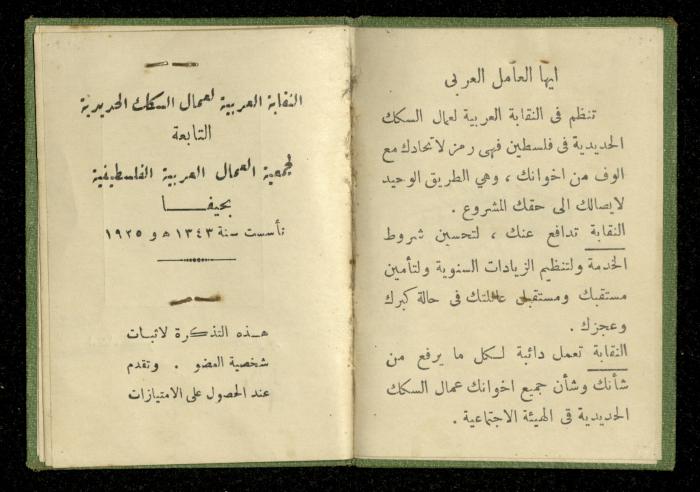 ايها العامل العربى
تنظم فى النقابة العربية لعمال السكك
الحديدية فى فلسطين فهى رمز لاتحادك مع
الوف من اخوانك ، وهي الطريق الوحيد
لايصالك الى حقك المشروع .
النقابة تدافع عنك ، لتحسين شروط
الخدمة ولتنظيم الزيادات السنوية ولتأمين
مستقبك ومستقبل عائلتك فى حالة كبرك
وعجزك .
النقابة تعمل دائبة لكل ما يرفع من
شأنك وشأن جميع اخوانك عمال السكك
الحديدية فى الهيئة الاجتماعية .
النقابة العربية لعمال السكك الحديدية
التابعة
لجمعية العمال العربية الفلسطينية
بحيفا
تأسست سنة ١٣٤٣ ه و ١٩٢٥
هذه التذكرة لاثبات
شخصية العضو . وتقدم
عند الحصول على الامتيازات